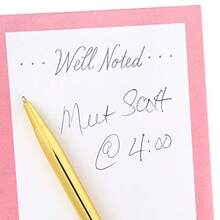 ··· Well Noted ···
Meet Scott
@ 4:00